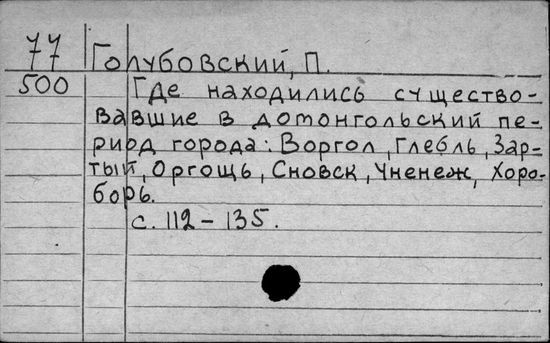 77 Голубовский, П.
500 Где находились существо-
вавшие в домонгольский пе-
риод города: Воргол, Глебль, Зар-
тый, Оргощь, Сновск, Уненеж, Хоро-
борь.
с. 112 – 135.